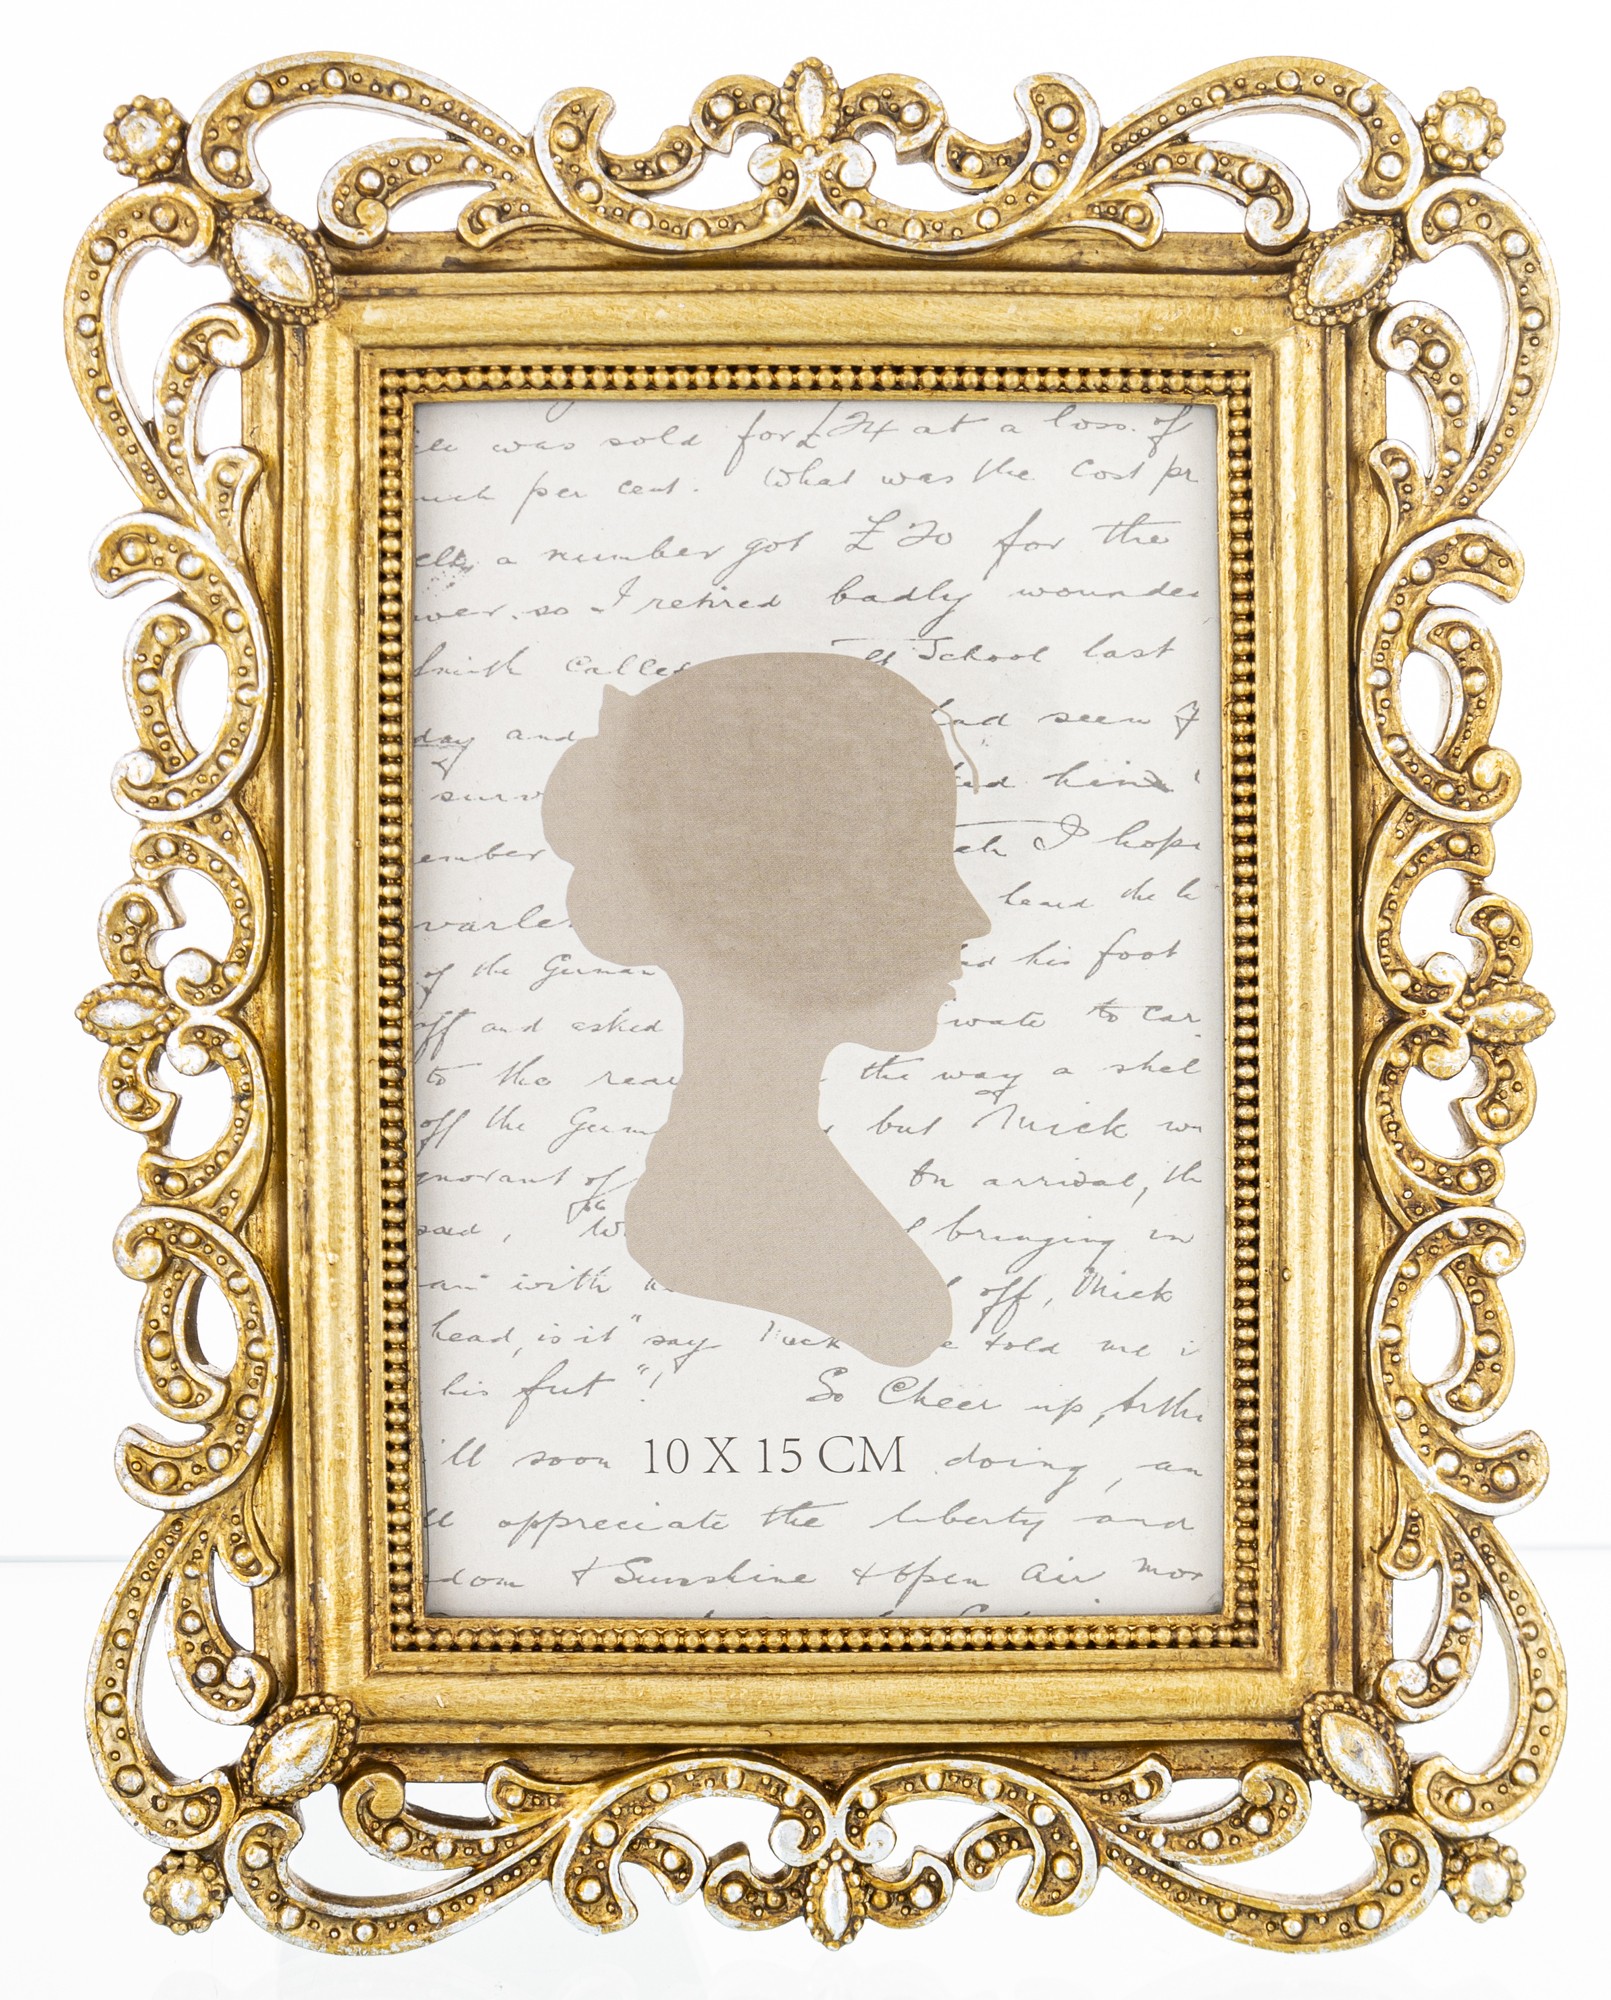 was sold for £24 at a loss. of
per cent. What was the Cost pr
a number got £20 for the
so I retired badly wounded
Smith called School last
day and had seen
surv ked him
ember ch I hope
heard the
of the German his foot
off and asked to car
to the rear the way a shel
off the Germ but Mick
gnorant of On arrival, th
said, bringing in
with off, Mick
head, is it" say e told me i
his feet"! So Cheer up, Arthu
'll soon 10 X 15 CM doing, an
ll appreciate the liberty and
dom & Sunshine & Open Air mor